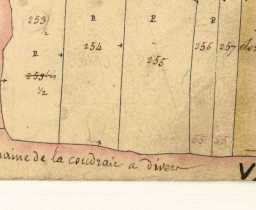 253 R R
½
R 254 255 256 257
253
½
55 55
maine de la coudraie a divers
V